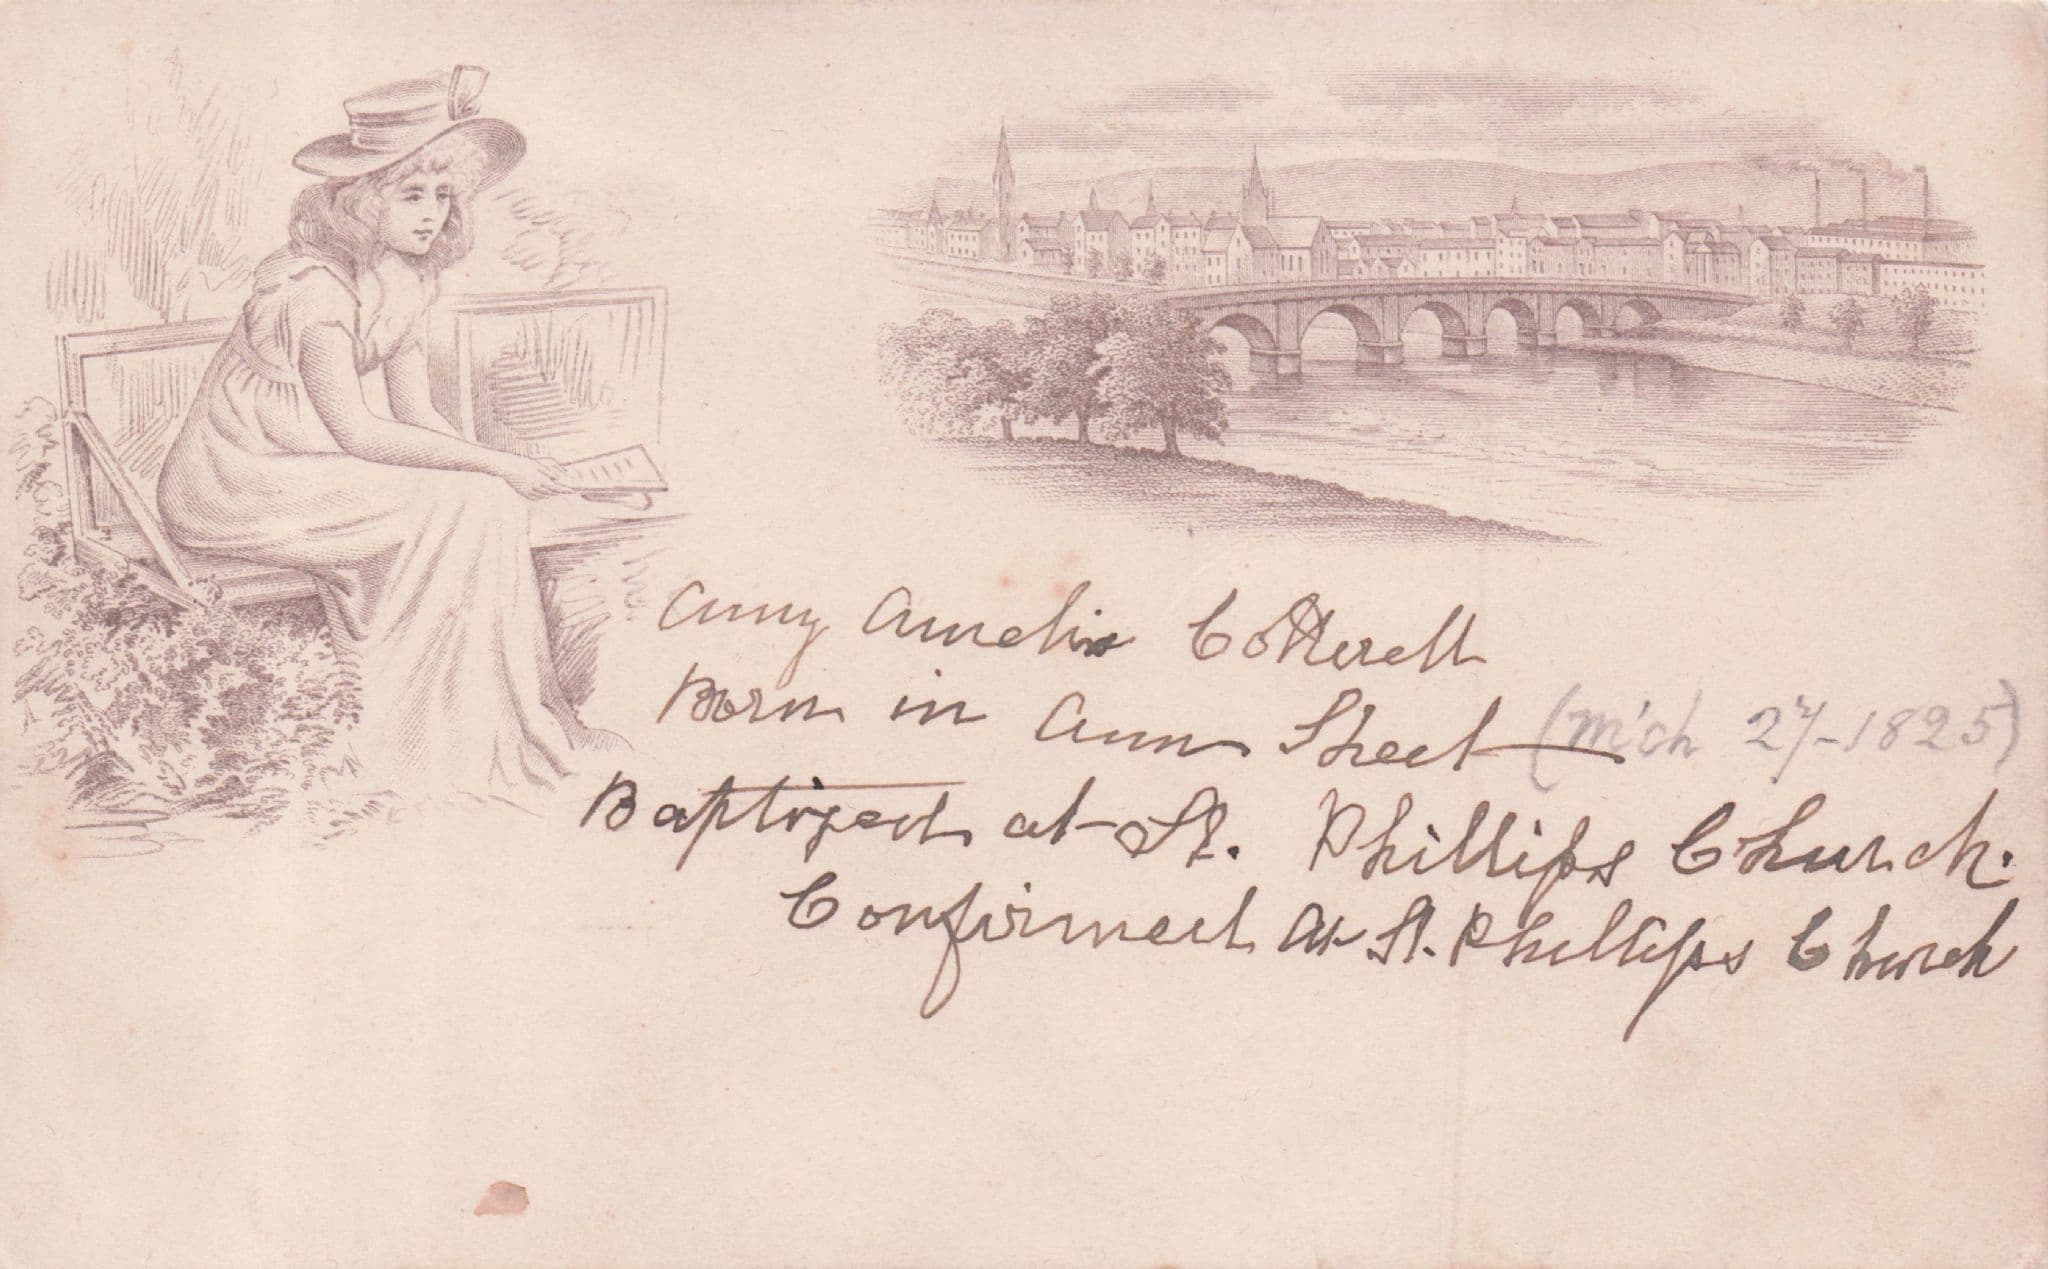 Amy Amelia Cotterell
Born in Ann Street (M'ch 27-1825)
Baptized at St. Phillips Church.
Confirmed at St. Phillips Church